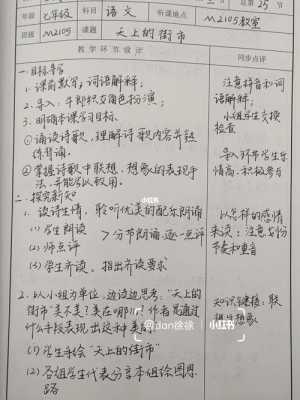 年级 七年级 科目 语文 听课地点 M2105教室
班级 M2105 课题 天上的街市
教学环节设计 同步点评
一.目标导学
1. 课前默写,词语解释;
2. 导入:牛郎织女角色扮演;
3. 明确本课学习目标.
① 诵读诗歌,理解诗歌内容并熟
练背诵.
② 掌握诗歌中联想、想象的表现手
法,并能学以致用.
注意拼音和词
语解释;
小组学生交换
检查
导入环节学生兴
情高,积极参与
二.探究新知
1. 读诗生情,聆听优美的配乐朗诵
(1) 学生朗读
(2) 师点评
>分节朗诵,逐一点评
(3) 学生齐读,指出齐读要求
以怎样的感情
来读;注意划分
节奏和重音
2. 以小组为单位,边读边思考:"天上的
街市"美不美?美在哪儿?作者是通过
什么手段表现出这种美的
(1) 学生手绘"天上的街市"
(2) 各组学生代表分享本组绘图思
路
知识链接:联
想与想象
小红书
@Jan徐徐
小红书